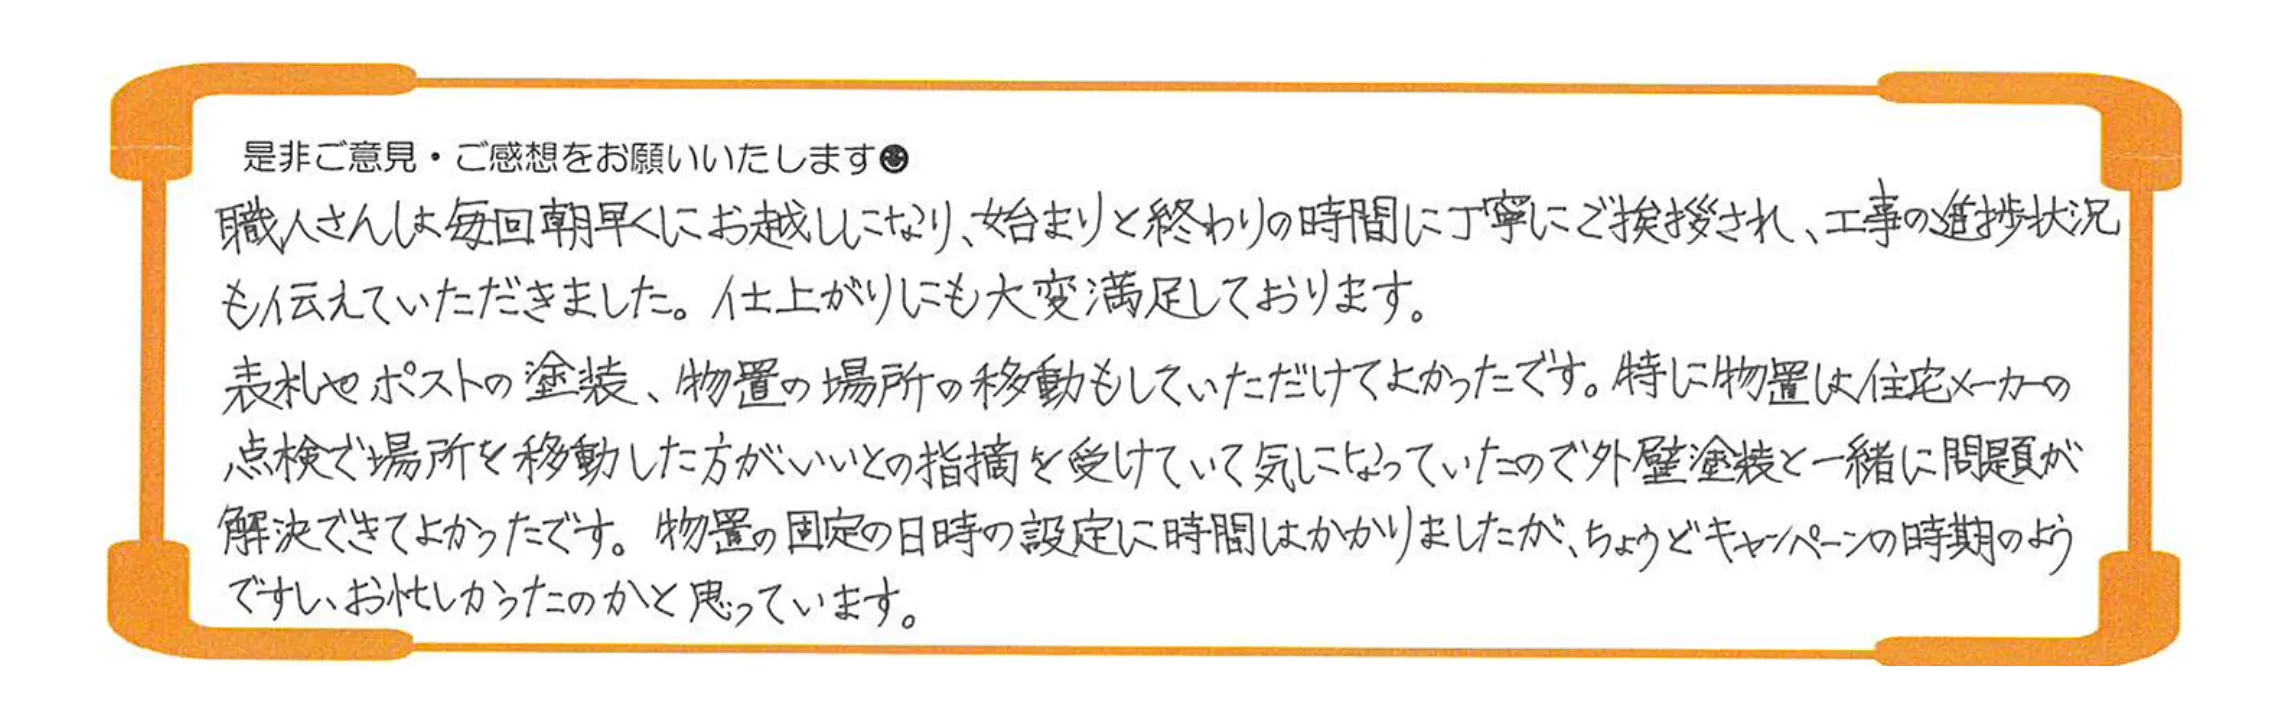 是非ご意見・ご感想をお願いいたします
職人さんは毎回朝早くにお越しになり、始まりと終わりの時間に丁寧にご挨拶され、工事の進捗状況
も伝えていただきました。仕上がりにも大変満足しております。
表札やポストの塗装、物置の場所の移動もしていただけてよかったです。特に物置は住宅メーカーの
点検で場所を移動した方がいいとの指摘を受けていて気になっていたので外壁塗装と一緒に問題が
解決できてよかったです。物置の固定の日時の設定に時間はかかりましたが、ちょうどキャンペーンの時期のよう
ですし、お忙しかったのかと思っています。